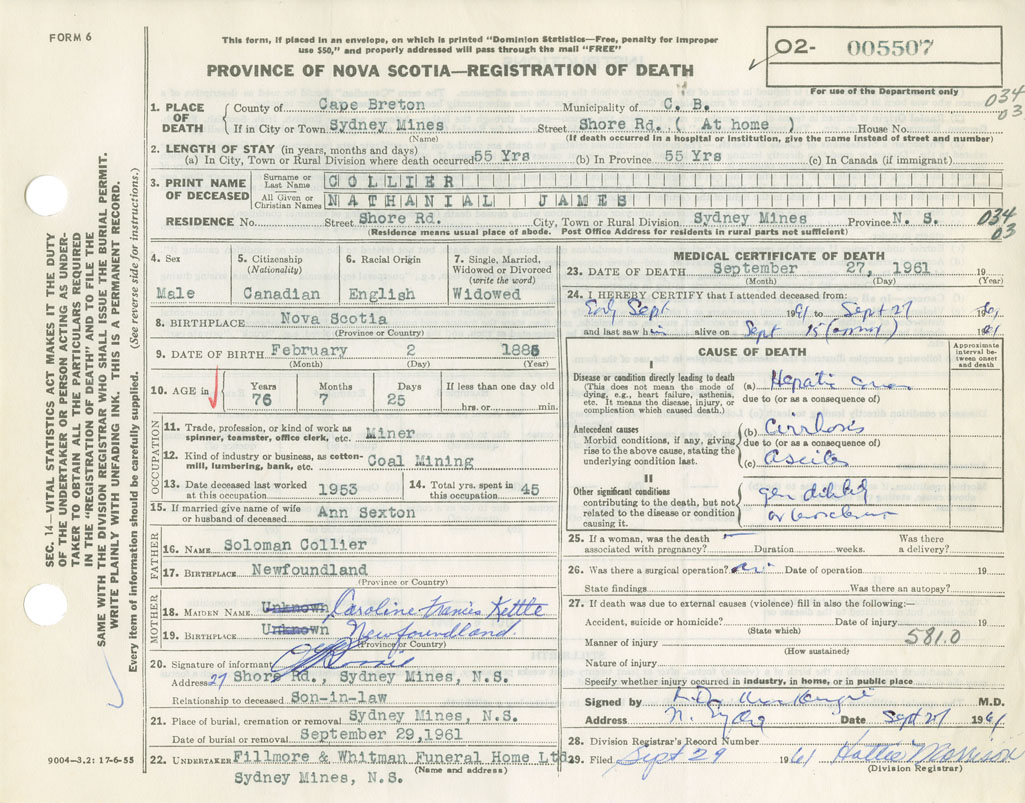 FORM 6
This form, if placed in an envelope, on which is printed "Dominion Statistics—Free, penalty for improper
use $50," and properly addressed will pass through the mail "FREE"
PROVINCE OF NOVA SCOTIA—REGISTRATION OF DEATH
02- 005507
For use of the Department only
034
03
1. PLACE OF DEATH County of Cape Breton Municipality of C. B.
If in City or Town Sydney Mines Street Shore Rd. ( At home ) House No.
(Name) (If death occurred in a hospital or institution, give the name instead of street and number)
2. LENGTH OF STAY (in years, months and days)
(a) In City, Town or Rural Division where death occurred 55 Yrs (b) In Province 55 Yrs (c) In Canada (if immigrant)
3. PRINT NAME OF DECEASED Surname or Last Name COLLIER
All Given or Christian Names NATHANIAL JAMES
RESIDENCE No. Street Shore Rd. City, Town or Rural Division Sydney Mines Province N. S. 034
03
(Residence means usual place of abode. Post Office Address for residents in rural parts not sufficient)
4. Sex Male
5. Citizenship (Nationality) Canadian
6. Racial Origin English
7. Single, Married, Widowed or Divorced (write the word) Widowed
8. BIRTHPLACE Nova Scotia
(Province or Country)
9. DATE OF BIRTH February 2 1885
(Month) (Day) (Year)
10. AGE in Years 76 Months 7 Days 25 If less than one day old hrs. or min.
OCCUPATION
11. Trade, profession, or kind of work as spinner, teamster, office clerk, etc. Miner
12. Kind of industry or business, as cotton-mill, lumbering, bank, etc. Coal Mining
13. Date deceased last worked at this occupation 1953 14. Total yrs. spent in this occupation 45
15. If married give name of wife or husband of deceased Ann Sexton
FATHER
16. NAME Soloman Collier
17. BIRTHPLACE Newfoundland
(Province or Country)
MOTHER
18. MAIDEN NAME Unknown Caroline Francis Kettle
19. BIRTHPLACE Unknown Newfoundland
(Province or Country)
20. Signature of informant
Address 27 Shore Rd., Sydney Mines, N.S.
Relationship to deceased Son-in-law
21. Place of burial, cremation or removal Sydney Mines, N.S.
Date of burial or removal September 29,1961
22. UNDERTAKER Fillmore & Whitman Funeral Home Ltd.
(Name and address)
Sydney Mines, N.S.
MEDICAL CERTIFICATE OF DEATH
23. DATE OF DEATH September 27, 1961 19
(Month) (Day) (Year)
24. I HEREBY CERTIFY that I attended deceased from:
Early Sept 1961 to Sept 27 1961
and last saw him alive on Sept 15 (approx) 1961
CAUSE OF DEATH
Approximate interval between onset and death
I
Disease or condition directly leading to death (a) Hepatic coma
(This does not mean the mode of dying, e.g., heart failure, asthenia, etc. It means the disease, injury, or complication which caused death.) due to (or as a consequence of)
Antecedent causes (b) Cirrhosis
Morbid conditions, if any, giving rise to the above cause, stating the underlying condition last. due to (or as a consequence of)
(c) ascites
II
Other significant conditions contributing to the death, but not related to the disease or condition causing it. gen debility
25. If a woman, was the death associated with pregnancy? Duration weeks. Was there a delivery?
26. Was there a surgical operation? no Date of operation 19
State findings Was there an autopsy?
27. If death was due to external causes (violence) fill in also the following:—
Accident, suicide or homicide? Date of injury 19
(State which)
Manner of injury 581.0
(How sustained)
Nature of injury
Specify whether injury occurred in industry, in home, or in public place
Signed by M.D.
Address N. Sydney Date Sept 27 1961
28. Division Registrar's Record Number
29. Filed Sept 29 1961 Hallie Morrison
(Division Registrar)
SEC. 14—VITAL STATISTICS ACT MAKES IT THE DUTY
OF THE UNDERTAKER OR PERSON ACTING AS UNDER-
TAKER TO OBTAIN ALL THE PARTICULARS REQUIRED
IN THE "REGISTRATION OF DEATH" AND TO FILE THE
SAME WITH THE DIVISION REGISTRAR WHO SHALL ISSUE THE BURIAL PERMIT.
WRITE PLAINLY WITH UNFADING INK. THIS IS A PERMANENT RECORD.
Every item of information should be carefully supplied. (See reverse side for instructions.)
9004—3.2: 17-6-55